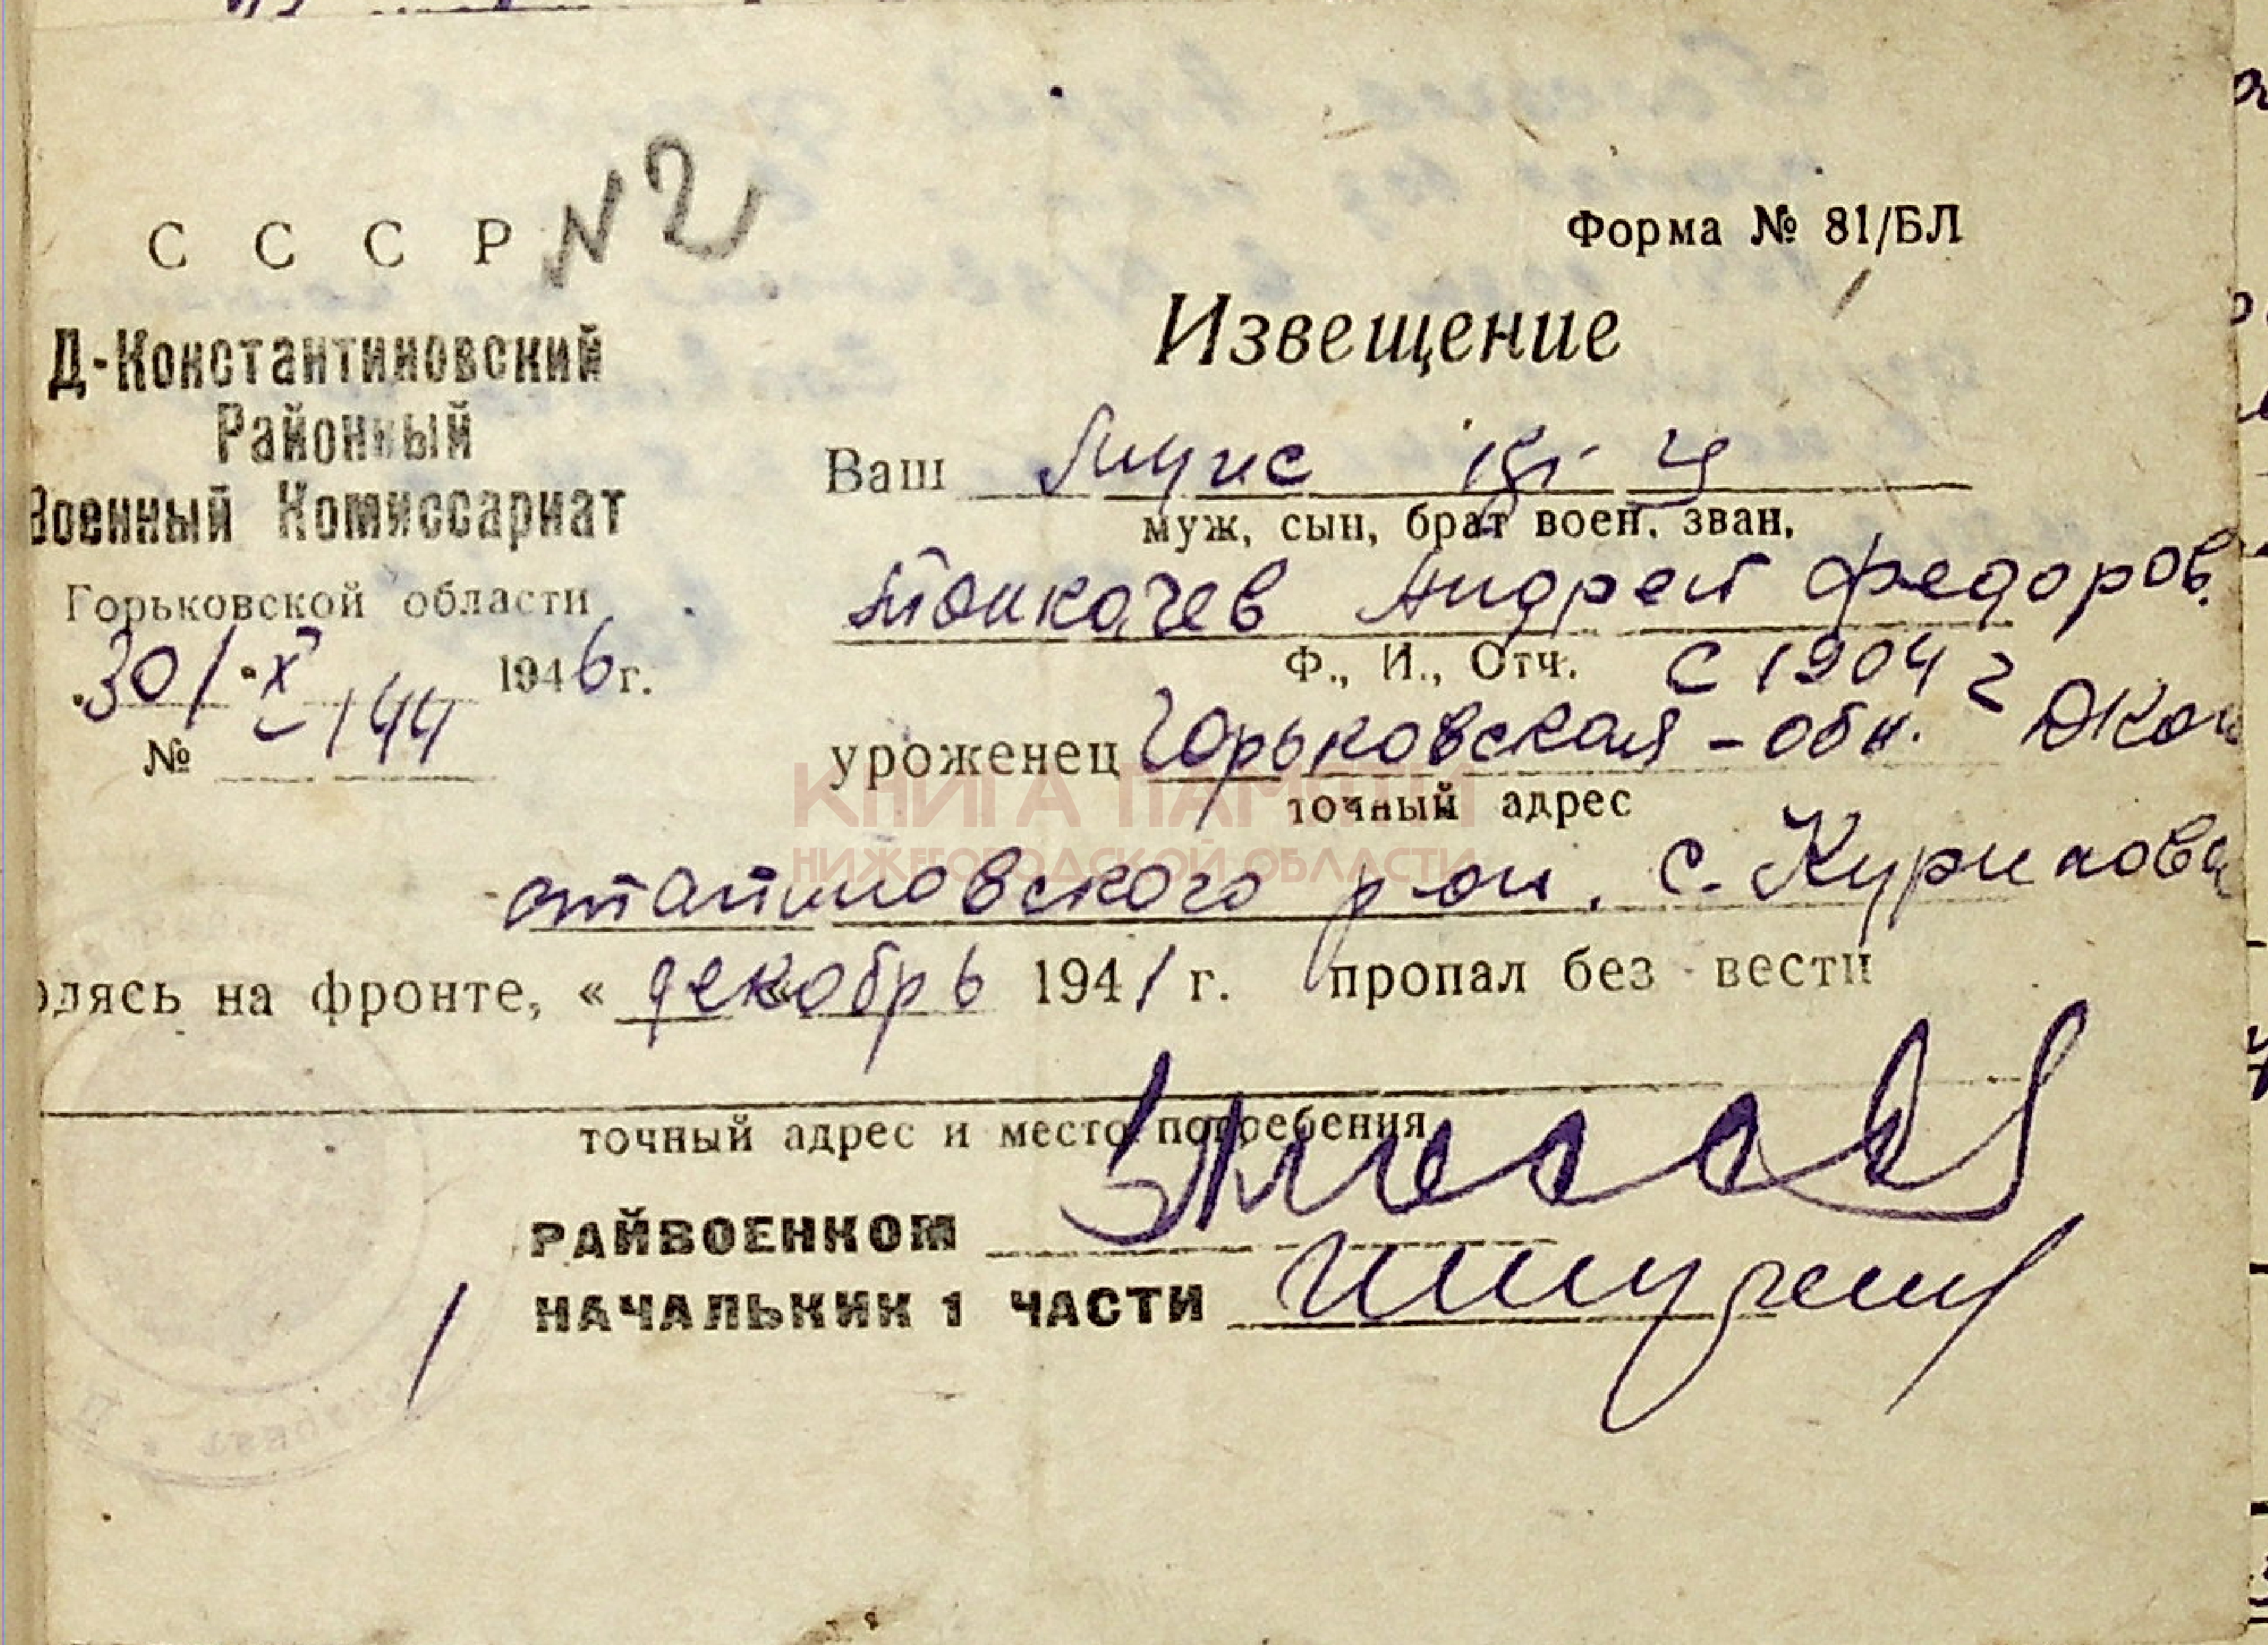 N 2
С С С Р
Форма № 81/БЛ
Д-Константиновский
Районный
Военный Комиссариат
Горьковской области
30/X 1946 г.
№ 144
Извещение
Ваш муж
муж, сын, брат воен. зван.
Толкачев Андрей Федоров.
Ф., И., Отч. с 1904 г
уроженец Горьковская-обл. ДКон
точный адрес
стантиновского р-он. с.
одясь на фронте, « декабрь 1941 г. пропал без вести
точный адрес и место погребения
РАЙВОЕНКОМ
НАЧАЛЬНИК 1 ЧАСТИ
КНИГА ПАМЯТИ
НИЖЕГОРОДСКОЙ ОБЛАСТИ